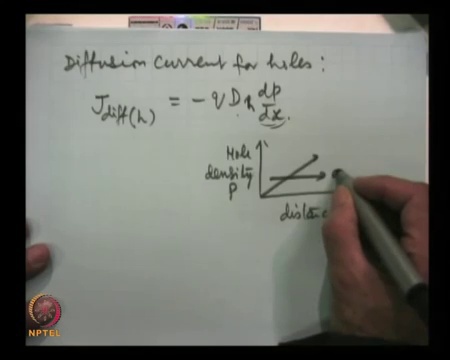 Diffusion current for holes :
J diff(h) = - q D h dp/dx .
Hole
density
p
NPTEL